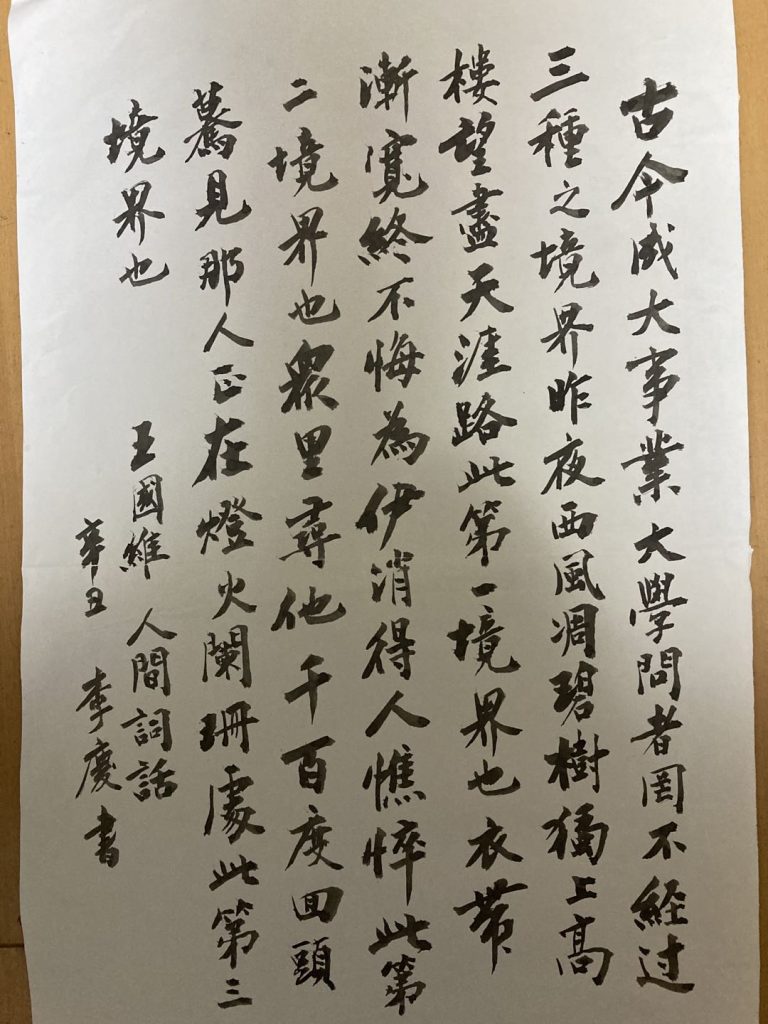 古今成大事業大學問者罔不經过
三種之境界昨夜西風凋碧樹獨上高
樓望盡天涯路此第一境界也衣帶
漸寬終不悔為伊消得人憔悴此第
二境界也眾里尋他千百度回頭
驀見那人正在燈火闌珊處此第三
境界也
王國維 人間詞話
辛丑 李慶書